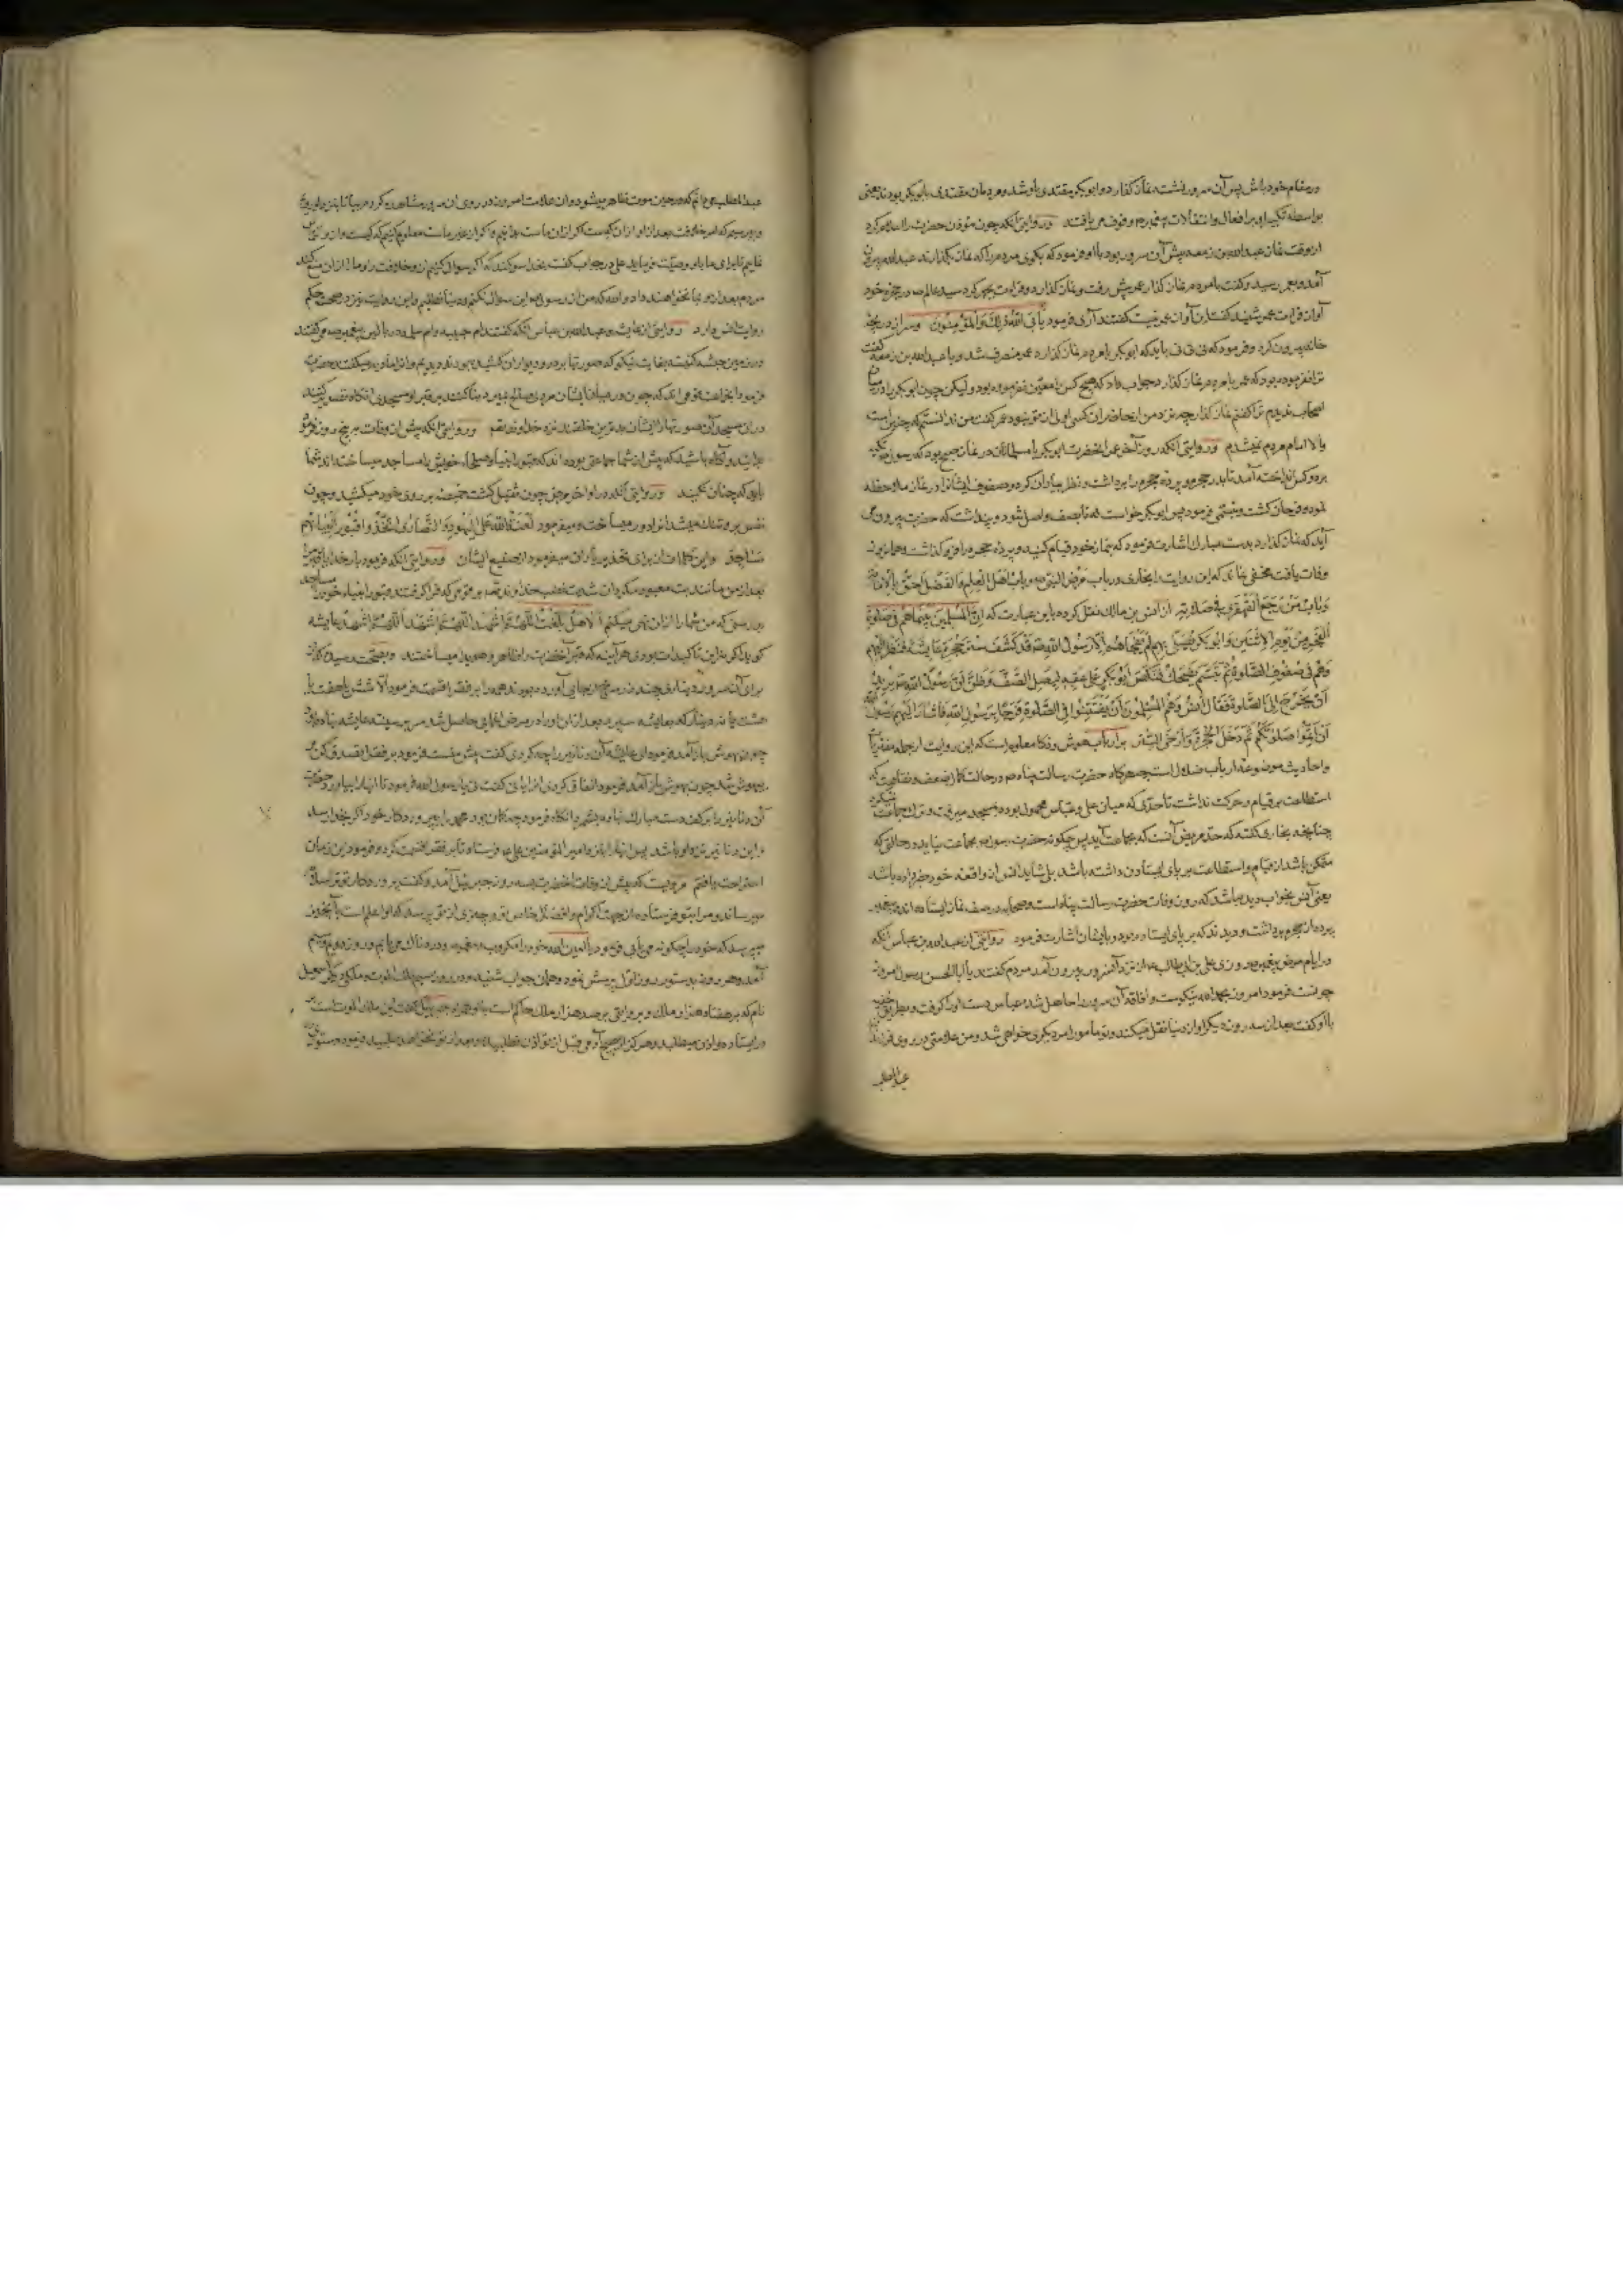 در مقام خود باش پس آن سرور نشسته نماز گذارد و ابوبکر مقتدی باو شد و مردمان مقتدی بابوبکر بودند یعنی
بواسطه تکبیر او بر افعال و انتقالات پیغمبر ص وقوف می یافتند و روایتی آنکه چون مؤذن حضرت را اعلام کرد
از وقت نماز عبدالله بن زمعه پیش آن سرور بود با او فرمود که بگوی مردم را که نماز بگذارند عبدالله بیرون
آمد و بعمر رسید و گفت با مردم نماز گذار عمر پیش رفت و نماز گذارد و قرائت بجهر کرد سید عالم ص در حجره خود
آواز قرائت عمر شنید گفت این آواز عمر نیست گفتند آری فرمود یأبی الله ذلک والمؤمنون و سر از دریچه
خانه بیرون کرد و فرمود که نی نی نی باید که ابوبکر با مردم نماز گذارد عمر منصرف شد و با عبدالله بن زمعه گفت
ترا فرموده بود که عمر با مردم نماز گذارد جواب داد که هیچ کس را معین نفرموده بود و لیکن چون ابوبکر را در میان
اصحاب ندیدم ترا گفتم نماز گذار چه نزد من از حاضران کسی اولی از تو نبود عمر گفت من ندانستم که چنین است
والا امام مردم نمیشدم و روایتی آنکه در روز آخر عمر آنحضرت ابوبکر با مسلمانان در نماز صبح بود که رسول تکیه
بر دو کس انداخته آمد تا بدر حجره و پرده حجره را برداشت و نظر بیاران کرد و صفوف ایشانرا در نماز ملاحظه
نمود و فرحان گشت و تبسمی فرمود پس ابوبکر خواست که تا بصف واصل شود و پنداشت که حضرت بیرون می
آید که نماز گذارد بدست مبارک اشارت فرمود که بنماز خود قیام کنید و پرده حجره را فرو گذاشت و همان روز
وفات یافت مخفی نماند که این روایت را بخاری در باب مرض النبی ص و باب اهل العلم والفضل احق بالامامة
و باب من رجع القهقری فی صلاته از انس بن مالک نقل کرده باین عبارت که ان المسلمین بیناهم فی صلوة
الفجر من یوم الاثنین وابوبکر یصلی بهم لم یفجأهم الا رسول الله ص قد کشف ستر حجرة عایشة فنظر الیهم
وهم فی صفوف الصلوة ثم تبسم یضحک فنکص ابوبکر علی عقبه لیصل الصف وظن ان رسول الله ص یرید
ان یخرج الی الصلوة فقال انس وهم المسلمون ان یفتتنوا فی الصلوة فرحا برسول الله فاشار الیهم رسول الله
ان اتموا صلوتکم ثم دخل الحجرة وارخی الستر بر ارباب هوش و ذکا معلوم است که این روایت از جمله مفتریات
و احادیث موضوعه ارباب ضلال است چه هرگاه حضرت رسالت پناه ص در حالت کمال ضعف و نقاهت که
استطاعت بر قیام و حرکت نداشت تا حدی که میان علی و عباس محمول بوده بمسجد میرفت و ترک جماعت نمیکرد
چنانچه بخاری گفته که حد مریض آنست که بجماعت آید پس چگونه حضرت رسول ص بجماعت نیاید در حالتی که
متمکن باشد از قیام و استطاعت بر پای ایستادن داشته باشد بلی شاید انس از واقعه خود خبر داده باشد
یعنی آنس بخواب دیده باشد که روز وفات حضرت رسالت پناه است و صحابه در صف نماز ایستاده اند و پیغمبر
پرده از حجره برداشت و دیدند که بر پای ایستاده بود و بایشان اشارت فرمود روایتی از عبدالله بن عباس آنکه
در ایام مرض پیغمبر ص روزی علی بن ابی طالب ع از نزد آنسرور بیرون آمد مردم گفتند یا ابا الحسن رسول امروز
چونست فرمود امروز بحمدالله نیکوست و افاقه آن سرور را حاصل شد عباس دست او را گرفت و بطریق خفیه
با او گفت بعد از سه روز دیگر او از دنیا نقل میکند و تو مأمور امر دیگری خواهی شد و من علامتی در روی فرزندان
عبدالمطلب
عبدالمطلب می دانم که در حین موت ظاهر میشود و آن علامت امروز در روی آن سرور مشاهده کرده ام بیا تا بنزد او رویم
و بپرسیم که امر خلافت بعد از او از آن کیست اگر از آن ماست بدانیم و اگر از غیر ماست معلوم کنیم که کیست و از برای
قایم تا برای ما باو وصیت فرماید علی در جواب گفت بخدا سوگند که اگر سوال کنیم از او خلافت را و ما را از آن منع کند
مردم بعد از او بما نخواهند داد والله که من از رسول ص این سوال نکنم و دنیا نطلبم و این روایت نیز در صحت حکم
روایت انس دارد روایتی از عایشه و عبدالله بن عباس آنکه گفتند ام حبیبه و ام سلمه در بالین پیغمبر ص می گفتند
در زمین حبشه کنیسه بغایت نیکو که صورتها بر در و دیوار آن کشیده بودند دیدیم و آنرا ماریه میگفتند حضرت
فرمود ایشان قومی اند که چون در میان ایشان مردی صالح بمیرد بنا کنند بر قبر او مسجدی آنگاه تصویر کنند
در آن مسجد آن صورتها را ایشان بدترین خلقند نزد خداوند و روایتی آنکه پیش از وفات به پنج روز فرمود
بدانید و آگاه باشید که پیش از شما جماعتی بوده اند که قبور انبیا و صلحاء خویش را مساجد میساختند شما
باید که چنان نکنید و روایتی آنکه در اواخر مرض چون ثقیل گشت خمیصه بر روی خود میکشید و چون
نفس بر وی تنگ میشد آنرا دور میساخت و میفرمود لعنة الله علی الیهود والنصاری اتخذوا قبور انبیائهم
مساجد و این کلمات از برای تحذیر یاران میفرمود از صنیع ایشان و روایتی آنکه فرمود بار خدایا قبر مرا
بعد از من مانند بت معبود مگردان شدت غضب خداوند بر قومی که فرا گرفتند قبور انبیاء خود را مساجد
بدرستی که من شما را از آن نهی میکنم الا هل بلغت اللهم اشهد اللهم اشهد اللهم اشهد عایشه
گوید اگر نه این تاکیدات بودی هر آینه که قبر آنحضرت را ظاهر میساختند و بصحت رسیده که از
برای آنسرور دیناری چند زر سرخ از جایی آورده بودند همه را بر فقرا قسمت فرمود الا شش یا هفت یا
هشت یا نه دینار که بعایشه سپرد بعد از آن او را در مرض اغمایی حاصل شد سر بر سینه عایشه نهاده
چون بهوش باز آمد فرمود ای عایشه آن دنانیر را چه کردی گفت پیش منست فرمود بر فقرا تصدق کن
بیهوش شد چون بهوش باز آمد فرمود انفاق کردی آنرا یا نی گفت نی یا رسول الله فرمود تا آنها را بیاورد
آن دنانیر را بر کف دست مبارک نهاده بشمرد آنگاه فرمود چه گمان بود محمد را بپروردگار خود اگر بخدا رسد
و این دنانیر نزد او باشد پس آنها را بنزد امیر المؤمنین علی ع فرستاد تا بر فقرا قسمت کرد و فرمود این زمان
استراحت یافتم مرویست که پیش از وفات آنحضرت بسه روز جبرئیل آمد و گفت پروردگار تو ترا سلام
میرساند و مرا بتو فرستاده از جهت اکرام و افضال خاص تو و چیزی از تو پرسد که او اعلم است بآن
میپرسد که خود را چگونه می یابی فرمود یا امین الله خود را مکروب و مغموم و دردناک می یابم و روز دوم و سیم
آمد و هر روز بدستور روز اول پرسش نمود و همان جواب شنید و در روز سیم ملک الموت و ملکی دیگر اسمعیل
نام که بر هفتاد هزار ملک و بروایتی بر صد هزار ملک حاکم است با او همراه جبرئیل گفت این ملک الموت است
در ایستاده و اذن میطلبد و هرگز از هیچ آدمی قبل از تو اذن نطلبیده و بعد از تو نخواهد طلبید فرمود دستوری